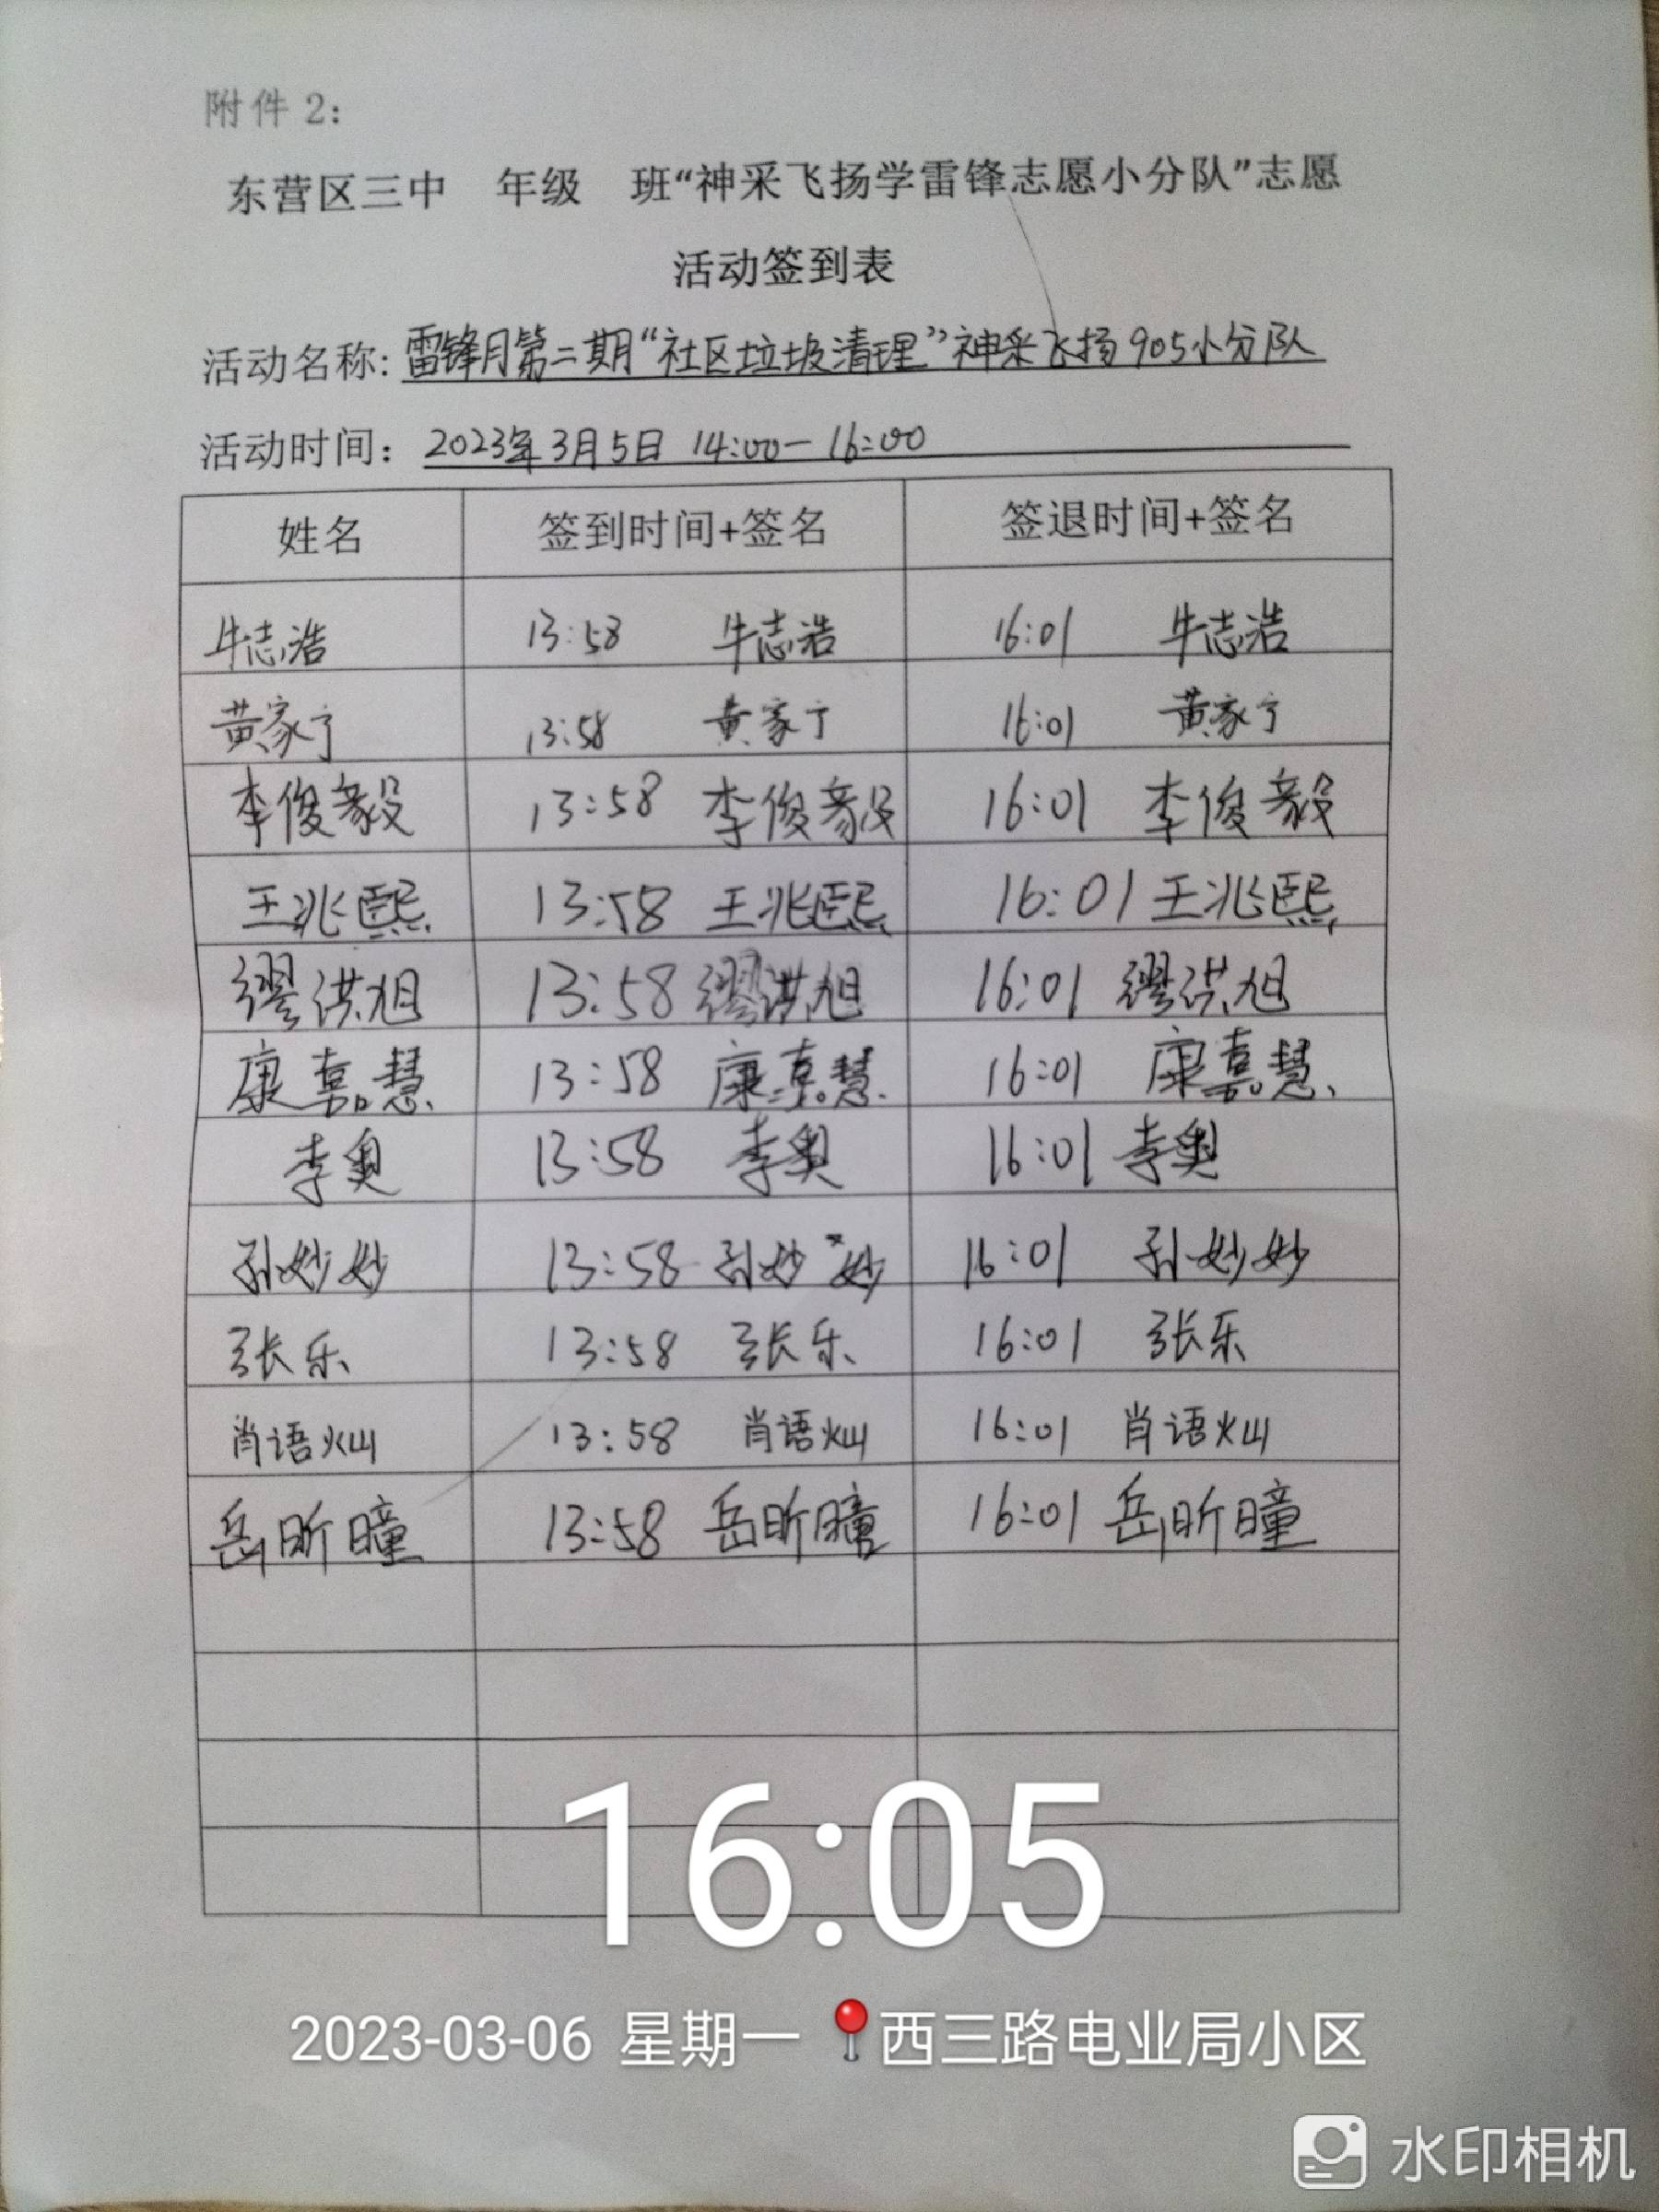 附件 2：
东营区三中 年级 班“神采飞扬学雷锋志愿小分队”志愿
活动签到表
活动名称: 雷锋月第二期“社区垃圾清理”神采飞扬905小分队
活动时间： 2023年3月5日 14:00-16:00
姓名 签到时间+签名 签退时间+签名
牛志浩 13:58 牛志浩 16:01 牛志浩
黄家宁 13:58 黄家宁 16:01 黄家宁
李俊毅 13:58 李俊毅 16:01 李俊毅
王兆熙 13:58 王兆熙 16:01 王兆熙
缪洪旭 13:58 缪洪旭 16:01 缪洪旭
康嘉慧 13:58 康嘉慧 16:01 康嘉慧
李奥 13:58 李奥 16:01 李奥
孙妙妙 13:58 孙妙妙 16:01 孙妙妙
张乐 13:58 张乐 16:01 张乐
肖语灿 13:58 肖语灿 16:01 肖语灿
岳昕曈 13:58 岳昕曈 16:01 岳昕曈
16:05
2023-03-06 星期一 西三路电业局小区
水印相机